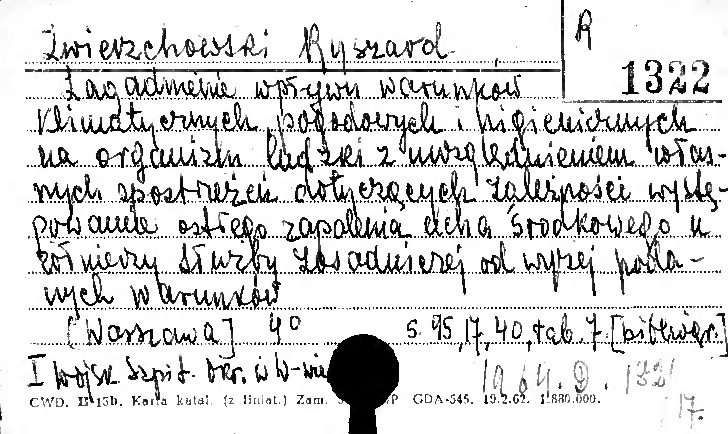 Zwierzchowski Ryszard
R
1322
Zagadnienie wpływu warunków
klimatycznych, pogodowych i higienicznych
na organizm ludzki z uwzględnieniem włas-
nych spostrzeżeń dotyczących zależności wystę-
powania ostrego zapalenia ucha środkowego u
żołnierzy służby zasadniczej od wyżej poda-
nych warunków
[Warszawa] 4° s. 95, 17, 40, tab. 7.
I Wojsk. Szpit. Okr. w W-wie
1964. D. 132
17.
CWD. Karta katal. (z liniat.) Zam. GDA-545. 19.2.62. 1.880.000.